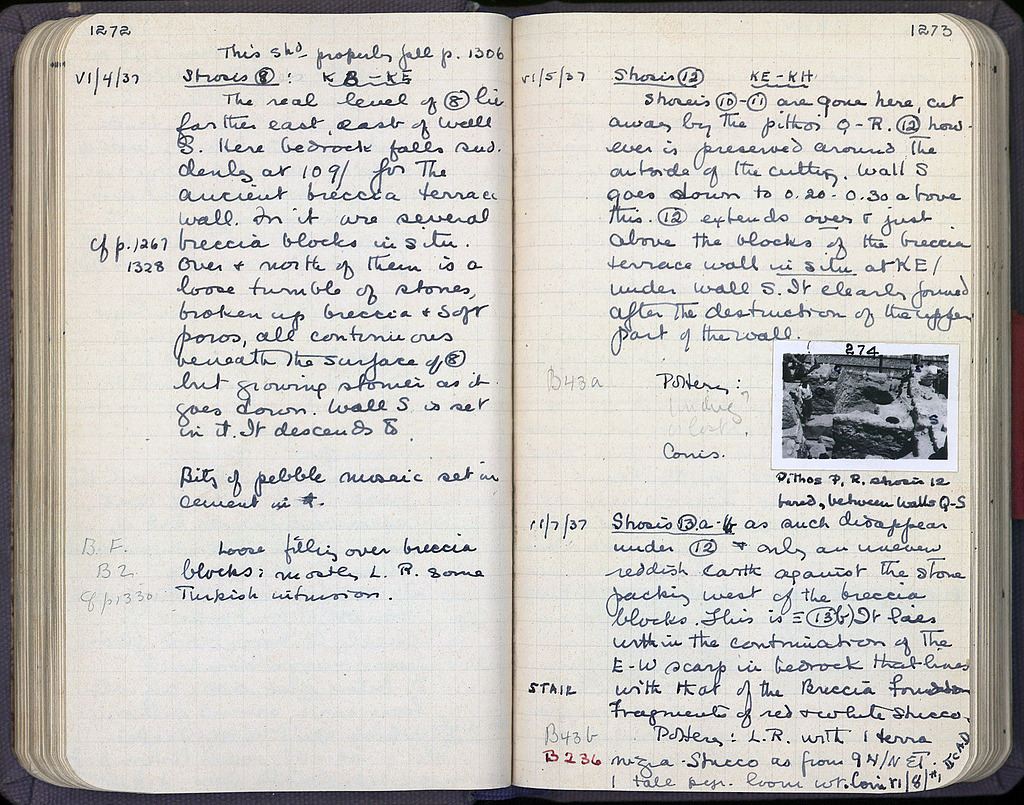 1272
This shd properly fall p. 1306
VI/4/37 Strosis ⑧ : K B - KE
The real level of ⑧ lie
farther east, east of wall
S. Here bedrock falls sud-
denly at 109/ for the
ancient breccia terrace
wall. In it are several
cf p. 1267 breccia blocks in situ.
1328 Over + north of them is a
loose tumble of stones,
broken up breccia + soft
poros, all continuous
beneath the surface of ⑧
but growing stonier as it
goes down. Wall S is set
in it. It descends
Bits of pebble mosaic set in
cement in it.
B. F. Loose filling over breccia
B 2 blocks: mostly L. R. Some
cf p. 1330 Turkish intrusion.
1273
VI/5/37 Strosis ⑫ KE - KH
Stroseis ⑩-⑪ are gone here, cut
away by the pithoi Q-R. ⑫ how-
ever is preserved around the
outside of the cutting. Wall S
goes down to 0.20-0.30 above
this. ⑫ extends over + just
above the blocks of the breccia
terrace wall in situ at KE/
under wall S. It clearly formed
after the destruction of the upper
part of the wall.
274
B43a Pottery:
Coins.
S
Pithos P, R, strosis 12
bared, between walls Q-S
VI/7/37 Strosis ⑬a-b as such disappear
under ⑫ + only an uneven
reddish earth against the stone
packing west of the breccia
blocks. This is = ⑬b) It lies
within the continuation of the
E-W scarp in bedrock that lines
STAIR with that of the Breccia foundation
Fragments of red + white stucco.
B43b Pottery: L.R. with 1 terra
B 236 nigra - Stucco as from 94/NET.
1 loom wt. Coin VI/8/#1